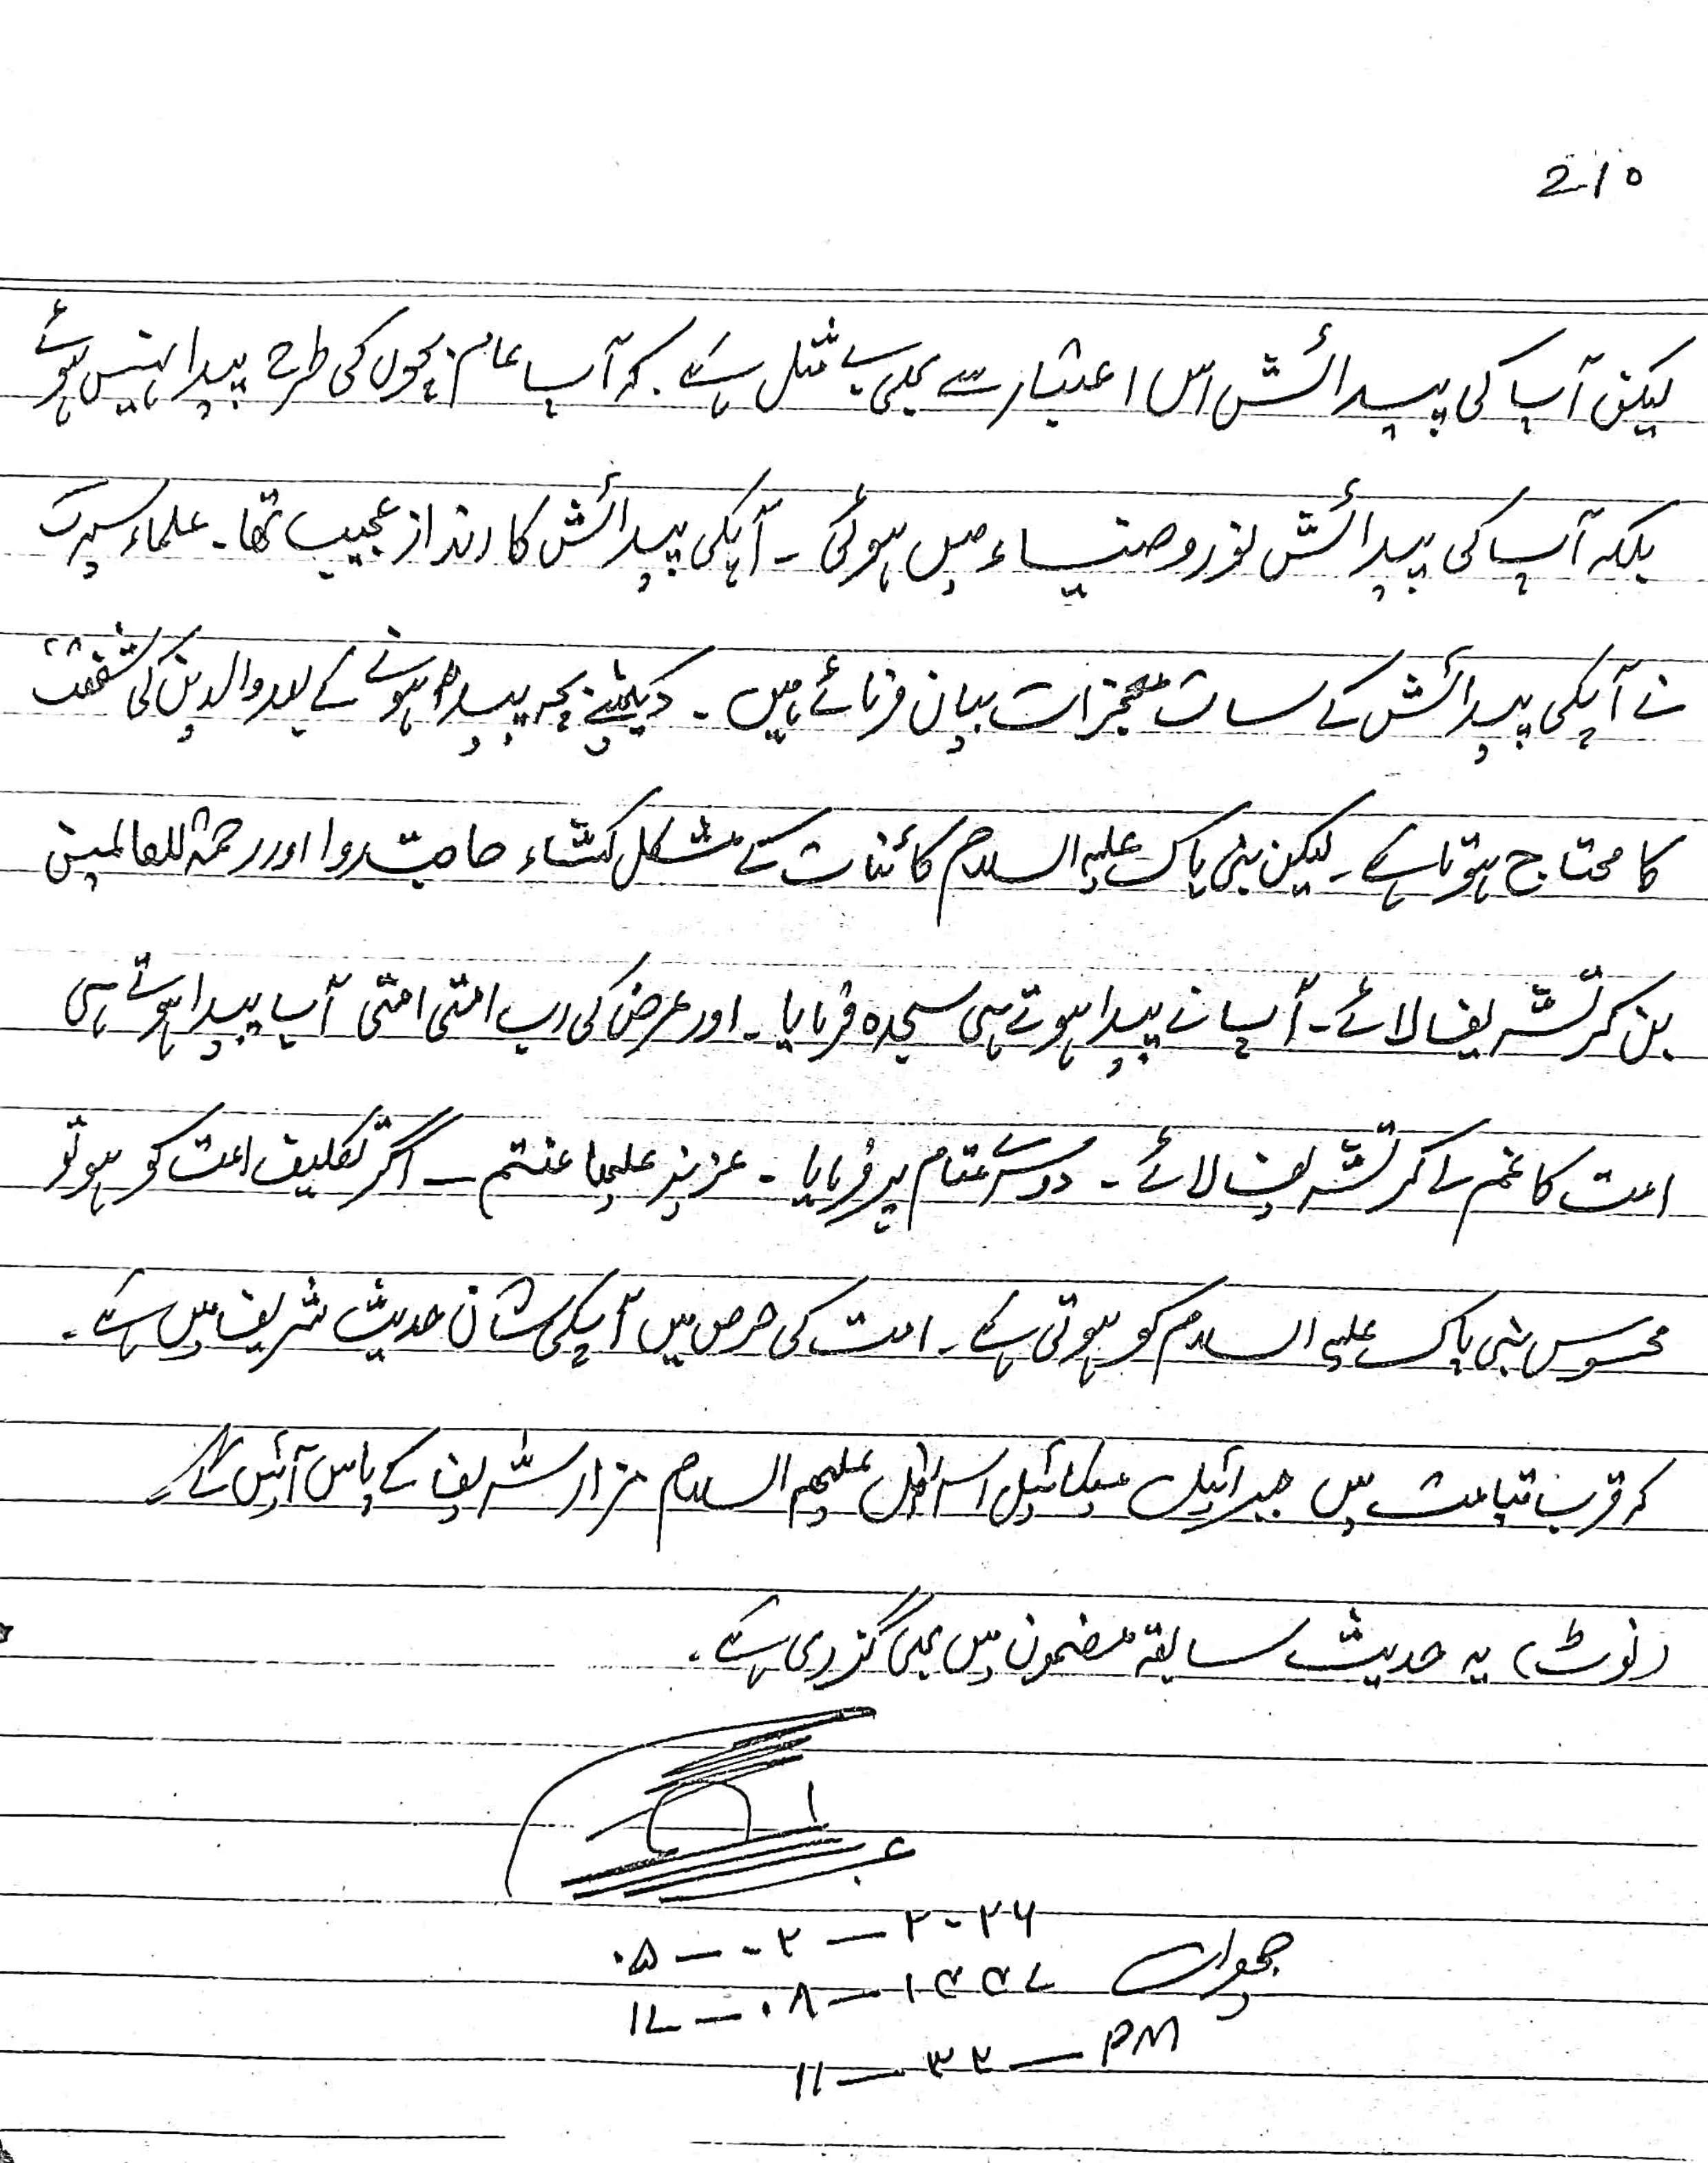 210
لیکن آپ کی پیدائش اس اعتبار سے بھی بے مثل ہے کہ آپ عام بچوں کی طرح پیدا نہیں ہوئے
بلکہ آپ کی پیدائش نور و ضیاء میں ہوئی ۔ آپکی پیدائش کا انداز عجیب تھا ۔ علماء سیرت
نے آپکی پیدائش کے سات معجزات بیان فرمائے ہیں ۔ دیکھئیے بچہ پیدا ہونے کے بعد والدین کی شفقت
کا محتاج ہوتا ہے ۔ لیکن نبی پاک علیہ السلام کائنات کے مشکل کشاء حاجت روا اور رحمۃ للعالمین
بن کر تشریف لائے ۔ آپ نے پیدا ہوتے ہی سجدہ فرمایا ۔ اور عرض کی رب امتی امتی آپ پیدا ہوتے ہی
امت کا غم لے کر تشریف لائے ۔ دوسرے مقام پر فرمایا ۔ عزیز علیہ ما عنتم ۔ اگر تکلیف امت کو ہو تو
محسوس نبی پاک علیہ السلام کو ہوتی ہے ۔ امت کی حرص میں آپکی شان حدیث شریف میں ہے ۔
کہ قرب قیامت میں جبرائیل میکائیل اسرافیل علیہم السلام مزار شریف کے پاس آئیں گے
(نوٹ) یہ حدیث سابقہ مضمون میں بھی گذری ہے ۔
۰۵ — ۰۲ — ۲۰۲۶
جمعرات ۱۷ — ۰۸ — ۱۴۴۷
۱۱ — ۳۲ — PM